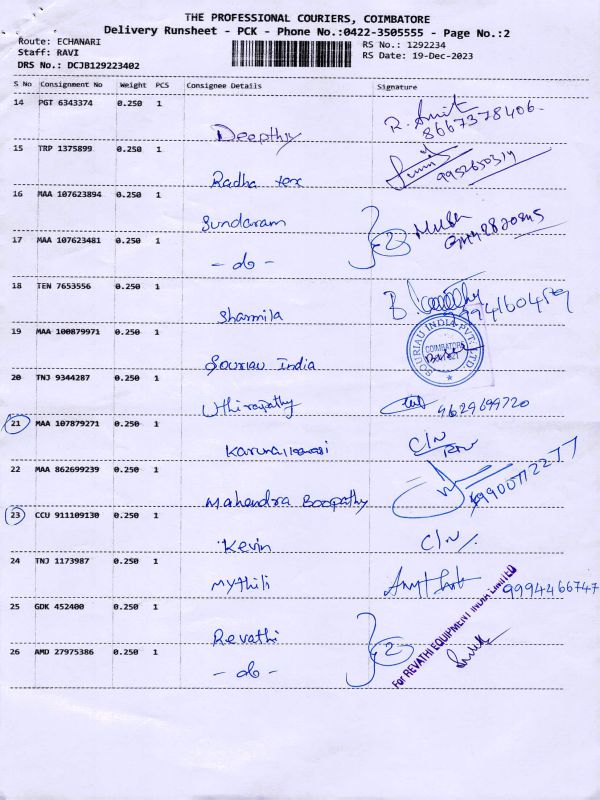 THE PROFESSIONAL COURIERS, COIMBATORE
Delivery Runsheet - PCK - Phone No.:0422-3505555 - Page No.:2
Route: ECHANARI
Staff: RAVI
DRS No.: DCJB129223402
RS No.: 1292234
RS Date: 19-Dec-2023
S No Consignment No Weight PCS Consignee Details Signature
14 PGT 6343374 0.250 1
Deepthy R. Amit
8667378406
15 TRP 1375899 0.250 1
Radha tex 9952650314
16 MAA 107623894 0.250 1
Sundaram 2
17 MAA 107623481 0.250 1
- do -
18 TEN 7653556 0.250 1
Sharmila
19 MAA 100879971 0.250 1
Souriau India SOURIAU INDIA PVT. LTD. COIMBATORE
20 TNJ 9344287 0.250 1
Uthirapathy 9629699720
21 MAA 107879271 0.250 1
C/N
22 MAA 862699239 0.250 1
Mahendra Boopathy
23 CCU 911109130 0.250 1
Kevin C/N
24 TNJ 1173987 0.250 1
Mythili 9994466747
25 GDK 452400 0.250 1
Revathi 2
For REVATHI EQUIPMENT INDIA LIMITED
26 AMD 27975386 0.250 1
- do -